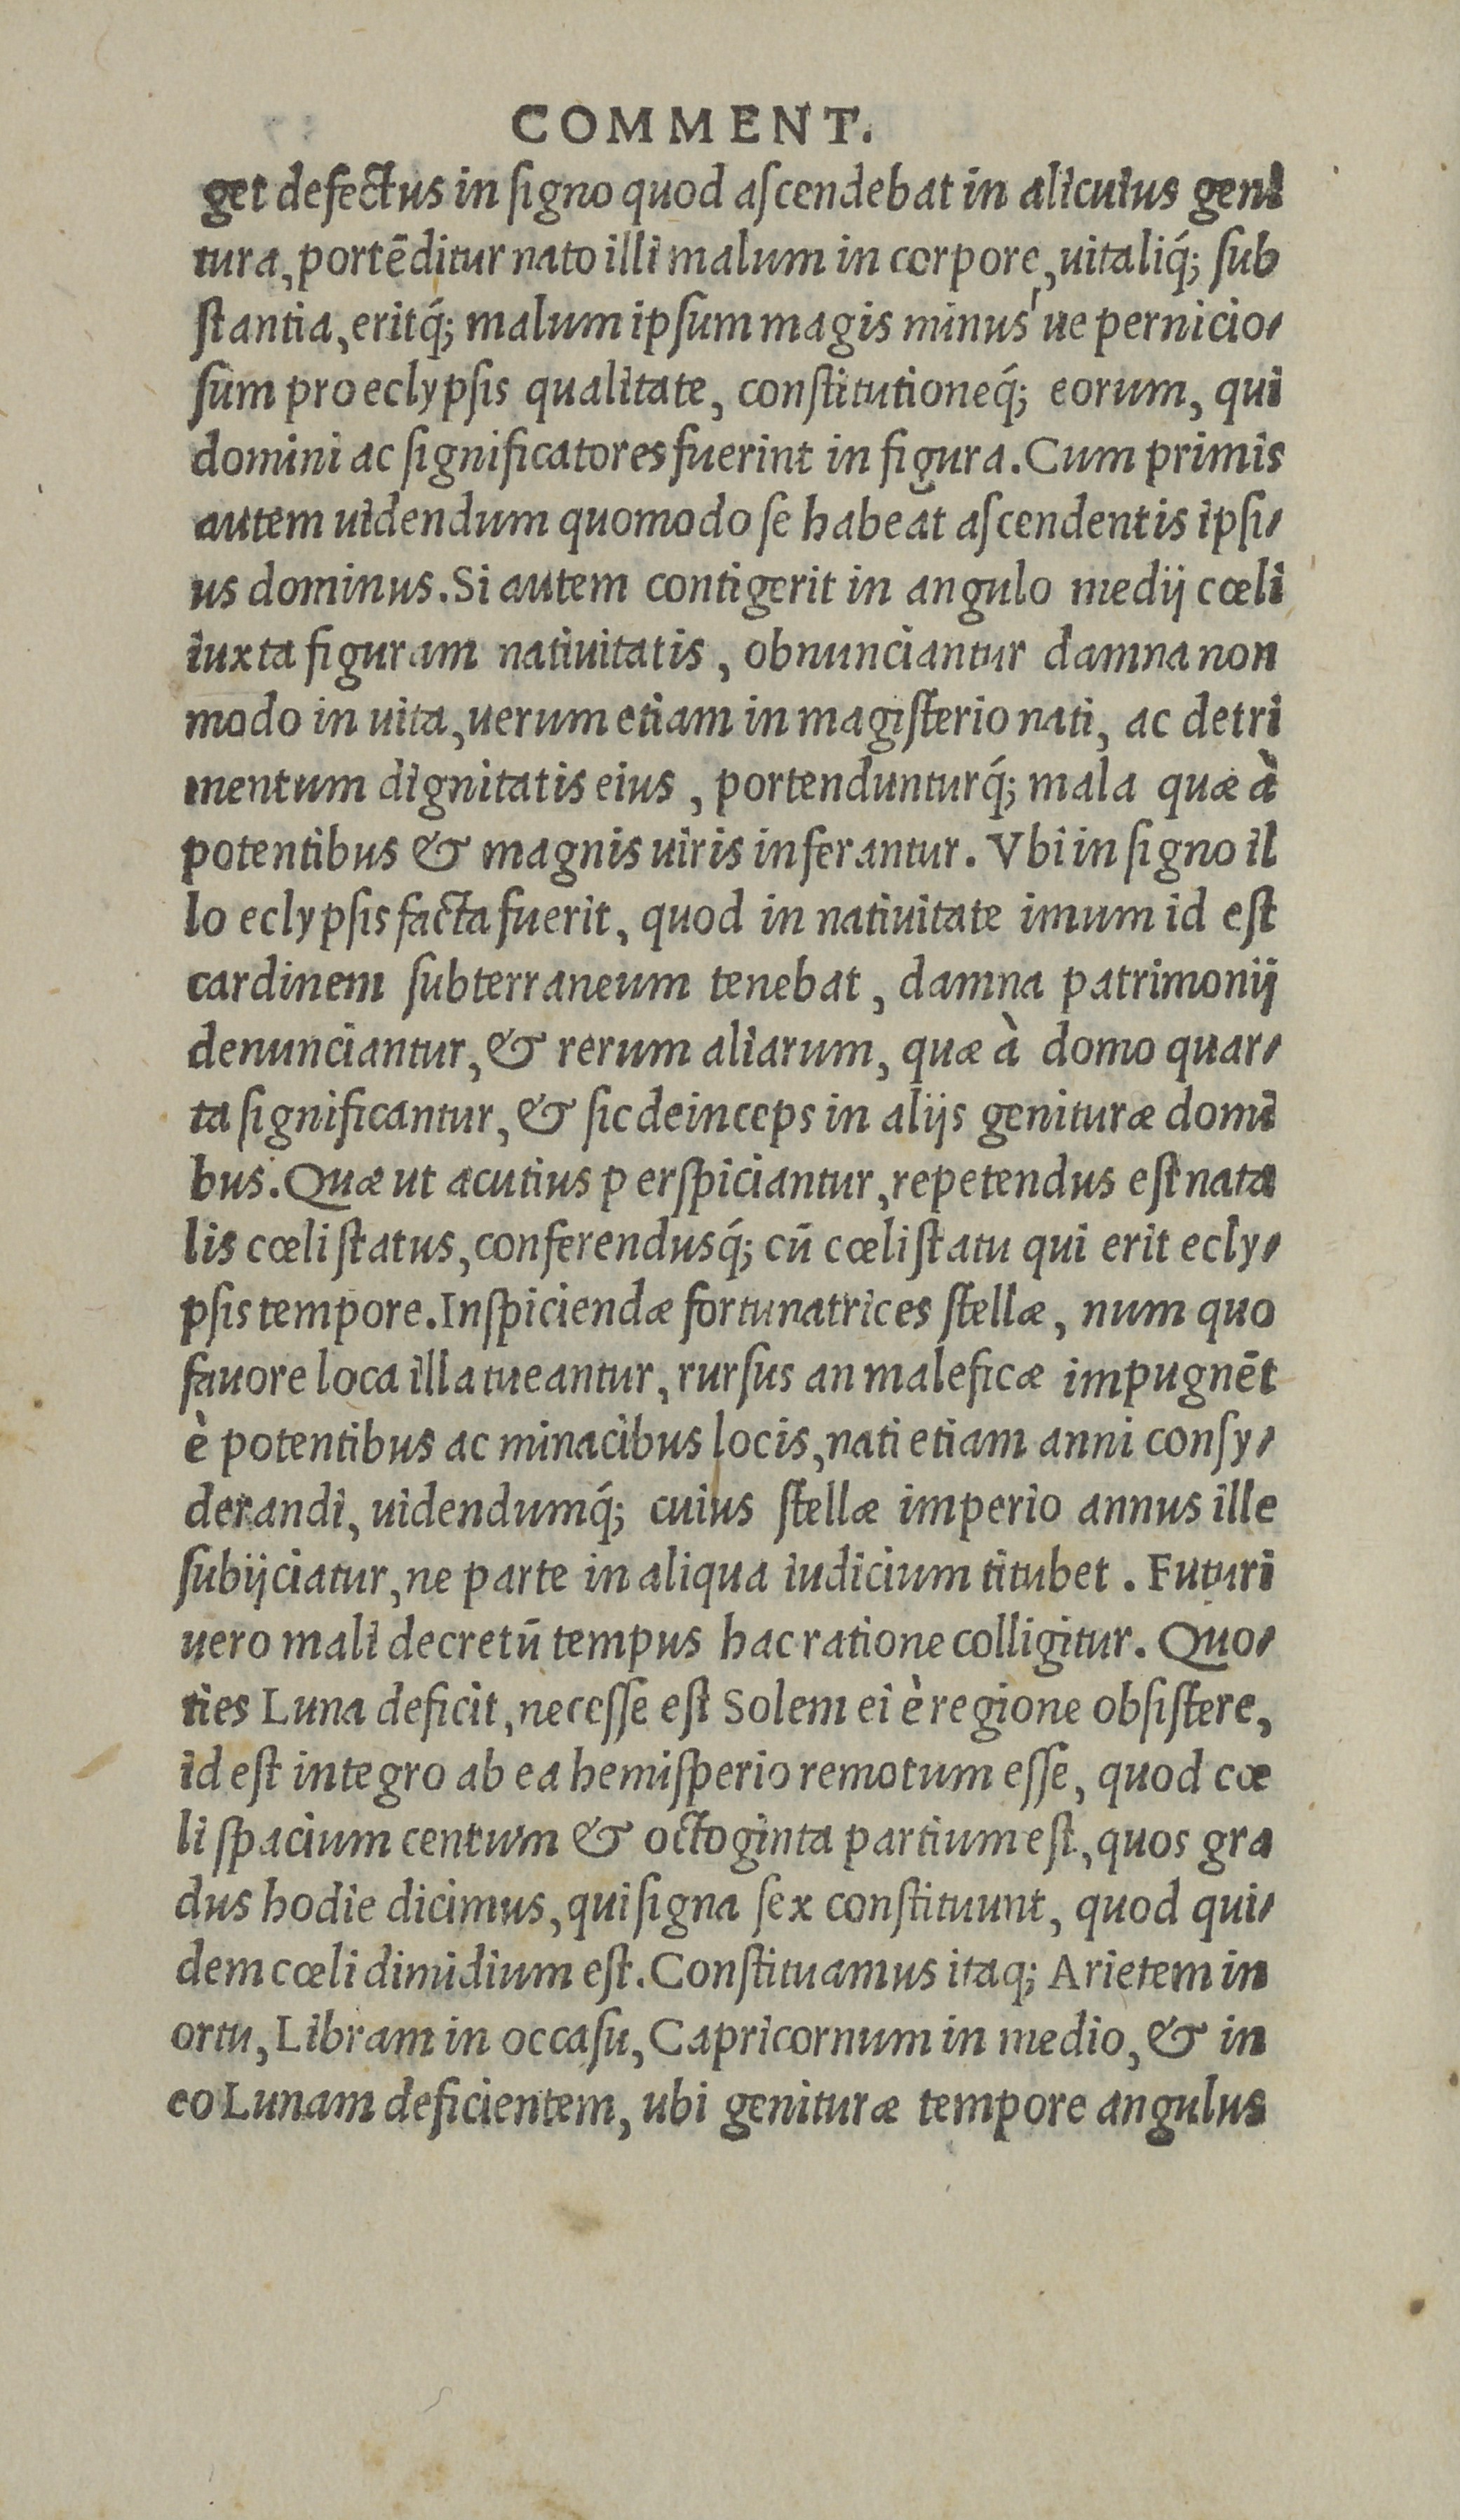 COMMENT.
get defectus in ſigno quod aſcendebat in alicuius geni
tura, portēditur nato illi malum in corpore, uitaliq́; ſub
ſtantia, eritq́; malum ipſum magis minus'ue pernicio-
ſum pro eclypſis qualitate, conſtitutioneq́; eorum, qui
domini ac ſignificatores fuerint in figura. Cum primis
autem uidendum quomodo ſe habeat aſcendentis ipſi-
us dominus. Si autem contigerit in angulo medij cœli
iuxta figuram natiuitatis, obnunciantur damna non
modo in uita, uerum etiam in magiſterio nati, ac detri
mentum dignitatis eius, portendunturq́; mala quæ à
potentibus & magnis uiris inferantur. Vbi in ſigno il
lo eclypſis facta fuerit, quod in natiuitate imum id eſt
cardinem ſubterraneum tenebat, damna patrimonij
denunciantur, & rerum aliarum, quæ à domo quar-
ta ſignificantur, & ſic deinceps in alijs genituræ domi
bus. Quæ ut acutius perſpiciantur, repetendus eſt nata
lis cœli ſtatus, conferendusq́; cū cœli ſtatu qui erit ecly-
pſis tempore. Inſpiciendæ fortunatrices ſtellæ, num quo
fauore loca illa tueantur, rurſus an maleficæ impugnēt
è potentibus ac minacibus locis, nati etiam anni conſy-
derandi, uidendumq́; cuius ſtellæ imperio annus ille
ſubijciatur, ne parte in aliqua iudicium titubet. Futuri
uero mali decretū tempus hac ratione colligitur. Quo-
ties Luna deficit, neceſſe eſt Solem ei è regione obſiſtere,
id eſt integro ab ea hemiſperio remotum eſſe, quod cœ
li ſpacium centum & octoginta partium eſt, quos gra
dus hodie dicimus, qui ſigna ſex conſtituunt, quod qui-
dem cœli dimidium eſt. Conſtituamus itaq; Arietem in
ortu, Libram in occaſu, Capricornum in medio, & in
eo Lunam deficientem, ubi genituræ tempore angulus